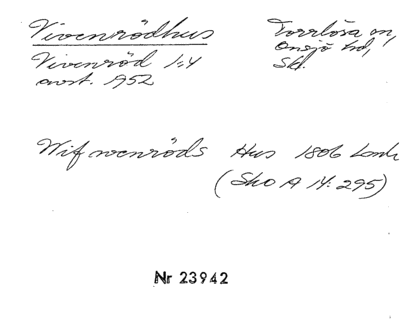 Vivenrödhus
Vivenröd 1:4
avst. 1952
Torrlösa sn,
Onsjö hd,
Sk.
Wifvvenröds Hus 1806 Lantm
(Sko A 14:295)
Nr 23942